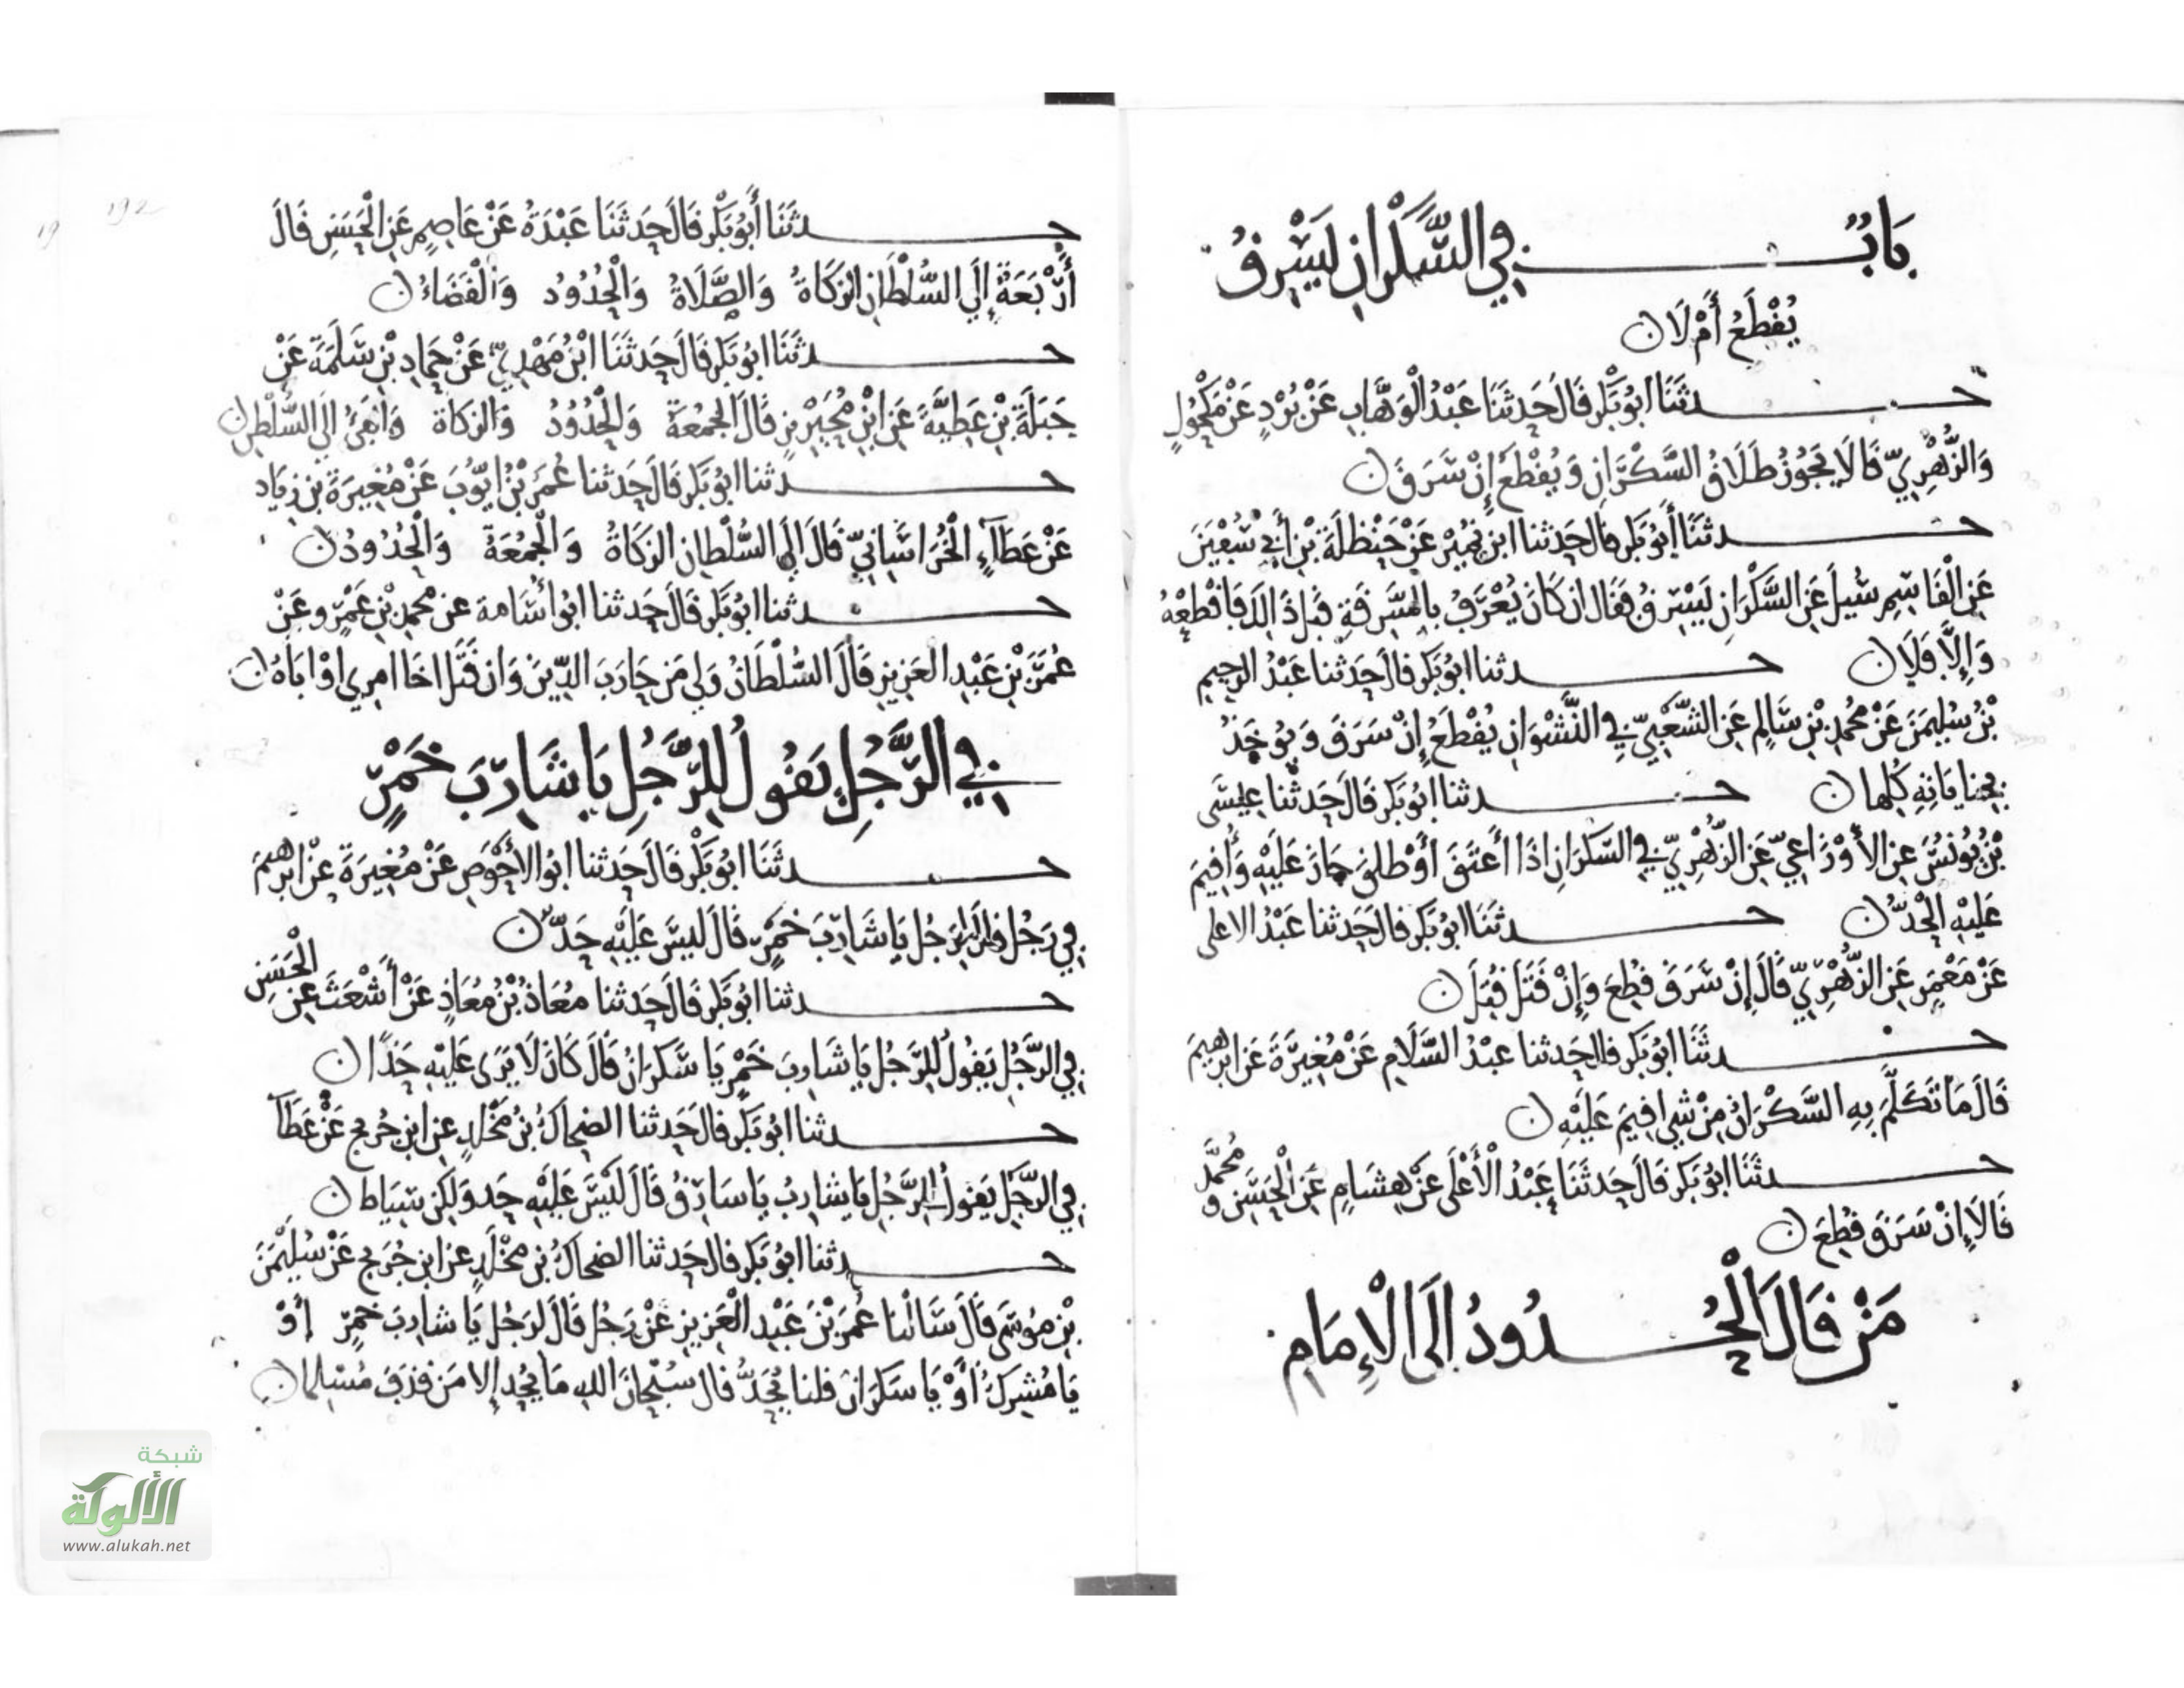 بَابُ فِي السَّكْرَانِ يَسْرِقُ
يُقْطَعُ أَمْ لَا ن
حدثَنَا ابُو بَكْرٍ قَالَ حَدثَنَا عَبْدُ الْوَهَّابِ عَنْ بُرْدٍ عَنْ مَكْحُولٍ
وَالزُّهْرِيِّ قَالَا يَجُوزُ طَلَاقُ السَّكْرَانِ وَيُقْطَعُ إِنْ سَرَقَ ن
حدثَنَا أَبُو بَكْرٍ قال حَدثنا ابن نُمَيْرٍ عَنْ حَنْظَلَةَ بْنِ أَبِي سُفْيَنَ
عَنِ الْقَاسِمِ سُيلَ عَنِ السَّكْرَانِ يَسْرِقُ فَقَالَ ان كَانَ يُعْرَفُ بِالسَّرِقَةِ قَبْلَ ذَالِكَ فَاقْطَعْهُ
وَإِلَّا فَلَا ن حدثنا ابُو بَكْرٍ قَالَ حَدثنا عَبْدُ الرحِيمِ
بْنُ سُلَيْمَنَ عَنْ مُحَمدِ بْنِ سَالِمٍ عَنِ الشَّعْبِيِّ فِي النَّشْوَانِ يُقْطَعُ إِنْ سَرَقَ وَيُوخَذُ
بِجناياتِهِ كُلِها ن حدثنا ابُو بَكْرٍ قَالَ حَدثنا عِيسَى
بْنُ يُونُسَ عن الأَوْزَاعِيِّ عَنِ الزُّهْرِيِّ فِي السَّكرَانِ اذَا أَعْتَقَ أَوْ طلق جَازَ عَلَيْهِ وَأُقِيمَ
عَلَيْهِ الْحَدُّ ن حدثَنَا ابُو بَكْرٍ قَالَ حَدثنا عَبْدُ الاعلى
عَنْ مَعْمَرٍ عَنِ الزُّهْرِيِّ قَالَ إِنْ سَرَقَ قُطِعَ وَإِنْ قَتَلَ قُتِلَ ن
حدثَنَا ابُو بَكْرٍ قال حَدثنا عبْدُ السَّلَامِ عَنْ مُغِيرَةَ عَنِ ابرَهِيمَ
قَالَ مَا تَكَلَّمَ بِهِ السَّكْرَانُ مِنْ شيٍ اقِيمَ عَلَيْهِ ن
حدثَنَا ابُو بَكْرٍ قَالَ حَدثَنَا عَبْدُ الْأَعْلَى عَنْ هِشَامٍ عَنِ الْحَسَنِ وَمُحَمَّد
قَالَا إِنْ سَرَقَ قُطِعَ ن
مَنْ قَالَ الْحُدُودُ الَى الْإِمَامِ
حدثَنَا أَبُو بَكْرٍ قَالَ حَدثَنَا عَبْدَةُ عَنْ عَاصِمٍ عَنِ الْحَسَنِ قَالَ
أَرْبَعَةٌ إِلَى السُّلْطَانِ الزَكَاةُ وَالصَّلَاةُ وَالْحُدُودُ وَالْقَضَاءُ ن
حدثَنَا ابُو بَكْرٍ قَالَ حَدثَنَا ابْنُ مَهْدِيٍّ عَنْ حَمادِ بْنِ سَلَمَةَ عَنْ
جَبَلَةَ بْنِ عَطِيَّةَ عَنِ ابْنِ مُحَيْرِيزٍ قَالَ الْجُمُعَةُ وَالْحُدُودُ وَالزكاة وَالْفَيْءُ الَى السُّلْطنِ ن
حدثنا ابُو بَكْرٍ قَالَ حَدثنا عُمَرُ بْنُ ايُّوبَ عَنْ مُغِيرَةَ بْنِ زِيَاد
عَنْ عَطَآءٍ الْخُرَاسَانِيِّ قَالَ إِلَى السُّلْطانِ الزكَاةُ وَالْجُمُعَةُ وَالْحُدُودُ ن
حدثنا ابُو بَكْرٍ قَالَ حَدثنا ابُو أُسَامة عن مُحمدِ بْنِ عَمْرٍو عَنْ
عُمَرَ بْنِ عَبْدِ العَزِيزِ قَالَ السُّلْطَانُ وَلِي مَن حَارَبَ الدِّينَ وَان قَتَلَ اخَا امرِي اوْ ابَاهُ ن
فِي الرَّجُلِ يَقُولُ لِلرَّجُلِ يَا شَارِبَ خَمْرٍ
حدثَنَا ابُو بَكْرٍ قَالَ حَدثنا ابُو الاحْوَصِ عَنْ مُغِيرَةَ عَنْ ابرَهِيمَ
فِي رَجُل قال لِرَجُلِ يَا شَارِبَ خَمْرٍ قَالَ لَيسَ عَلَيْهِ حَدٌّ ن
حدثنا ابُو بَكْرٍ قَالَ حَدثنا مُعَاذُ بْنُ مُعَاذٍ عَنْ أَشْعَثَ عَنِ الْحَسَنِ
فِي الرَّجُلِ يَقُولُ لِلرَّجُلِ يَا شَارِبَ خَمْرٍ يَا سَكرَانُ قَالَ كَانَ لَا يَرَى عَلَيْهِ حَدًا ن
حدثنا ابُو بَكْرٍ قَالَ حَدثنا الضحاكُ بْنُ مَخْلَدٍ عن ابن جُريج عَنْ عَطَآ
فِي الرَّجُلِ يَقولُ لِلرَّجُلِ يَا شارِبُ يَا سَارِقُ قَالَ لَيْسَ عَلَيْهِ حَد وَلكِن سِيَاط ن
حدثنا ابُو بَكْرٍ قَالَ حَدثنا الضحاكُ بْن مَخْلَدٍ عن ابن جُرَيج عَنْ سُلَيْمَنَ
بْنِ مُوسَى قَالَ سَالْنا عُمَرَ بْنَ عَبْدِ الْعَزِيزِ عَنْ رَجُل قَالَ لرَجُل يَا شَارِبَ خَمْرٍ أَوْ
يَا مُشْرِكُ أَوْ يَا سَكرَانُ قلنا يُحَدُّ قال سُبْحَانَ اللهِ مَا يُحَد إِلا مَن قَذَفَ مُسْلِمًا ن
192
19
شبكة
الألوكة
www.alukah.net